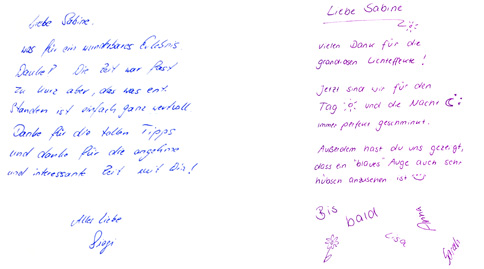 Liebe Sabine.
was für ein wunderbares Erlebnis
Danke! Die Zeit war fast
zu kurz aber, das was ent-
standen ist einfach ganz wertvoll.
Danke für die tollen Tipps
und danke für die angenehme
und interessante Zeit mit Dir!
Alles Liebe
Liebe Sabine
vielen Dank für die
grandiosen Lichteffekte!
Jetzt sind wir für den
Tag und die Nacht
immer perfekt geschminkt.
Außerdem hast du uns gezeigt,
dass ein "blaues" Auge auch sehr
hübsch anzusehen ist
Bis bald
Anna
Lisa
Sarah